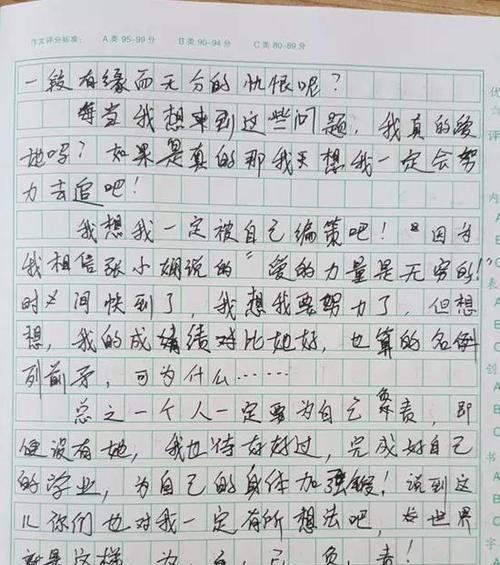 作文评分标准： A类 95-99分 B类 90-94分 C类 80-89分
一段有缘而无分的仇恨呢？
每当我想来到这些问题，我真的爱
她吗？如果是真的那我天想我一定会努
力去追吧！
我想我一定被自己编策吧！“因为
我相信张小娴说的“爱的力量是无穷的！
时间快到了，我想我要努力了，但想
想，我的成绩对比她好，也算的名例
列前矛，可为什么……
总之一个人一定要为自己负责，即
便没有她，我也待好好过，完成好自己
的学业，为自己的身体加强锻！说到这
儿你们也对我一定有所想法吧，世界
就是这样，为，自，己，负，责！
优
☆
评
内
A
B
C
表
A
B
C
创
A
B
C
书
A
B
C
字